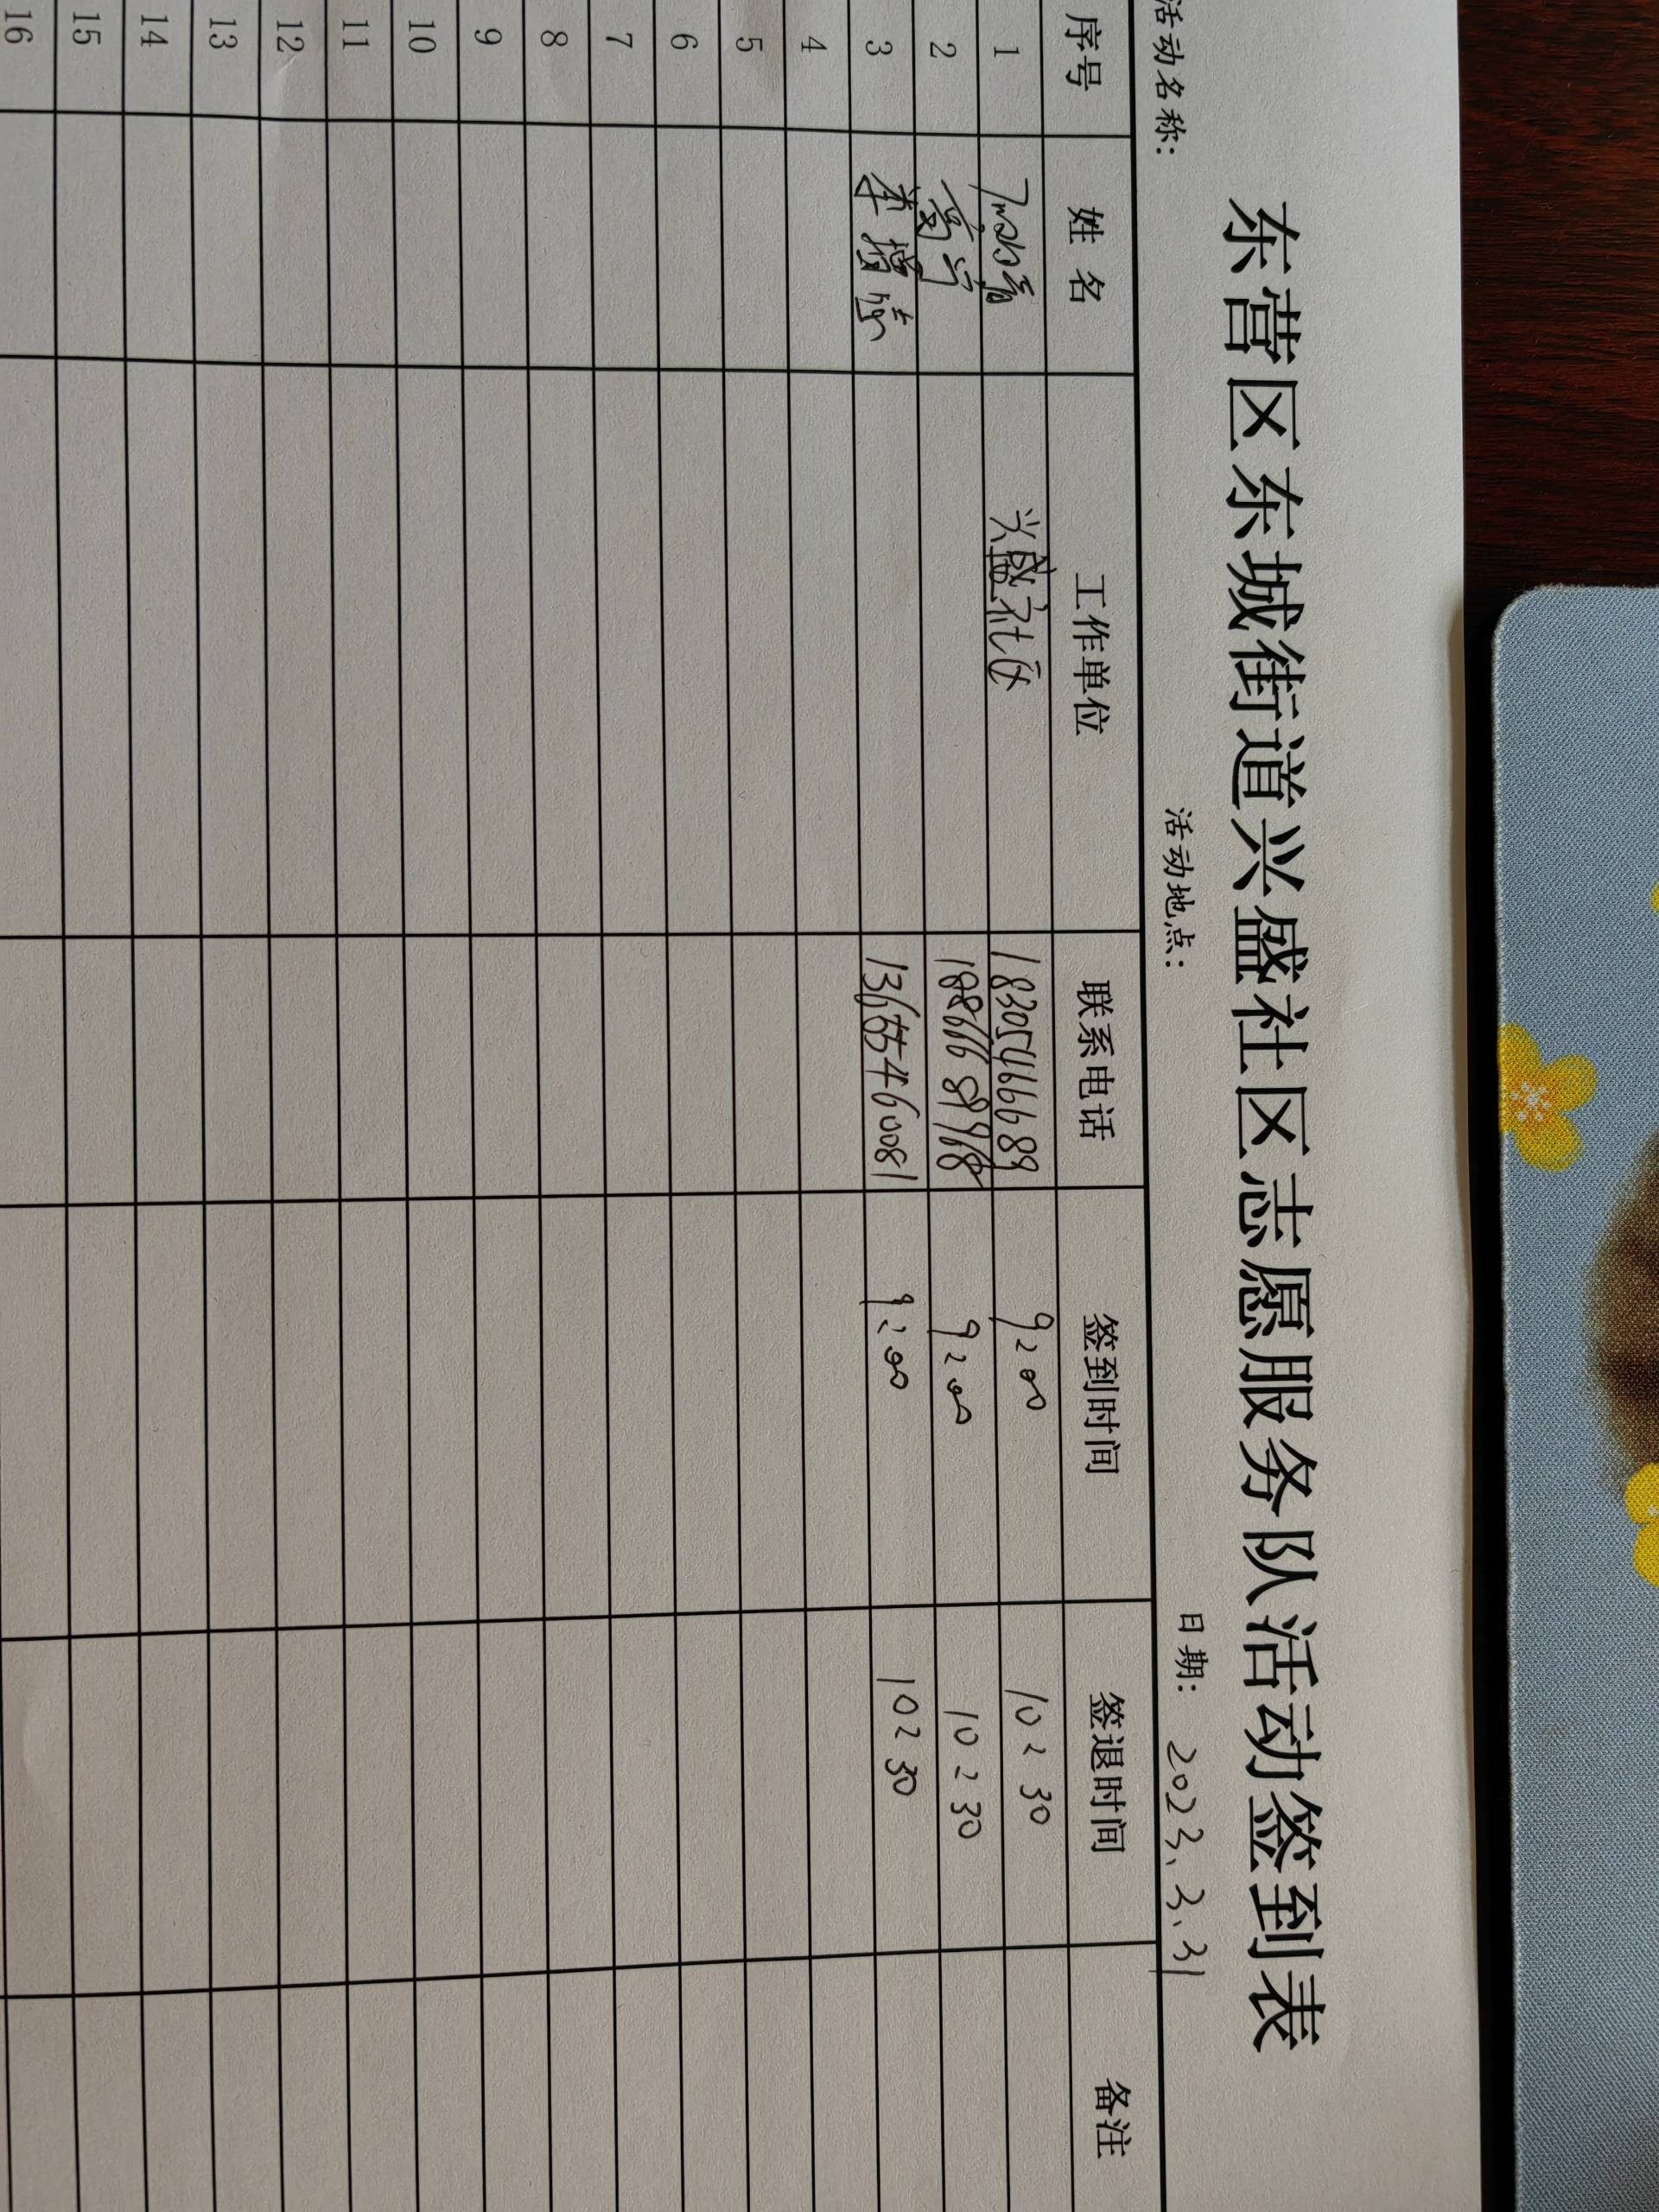 东营区东城街道兴盛社区志愿服务队活动签到表
活动名称： 活动地点： 日期： 2023.3.31
序号 姓名 工作单位 联系电话 签到时间 签退时间 备注
1 兴盛社区 18305466689 9:00 10:30
2 18866689968 9:00 10:30
3 13655460081 9:00 10:30
4
5
6
7
8
9
10
11
12
13
14
15
16